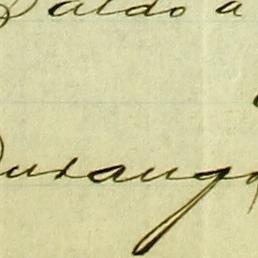 Saldo a
Durango